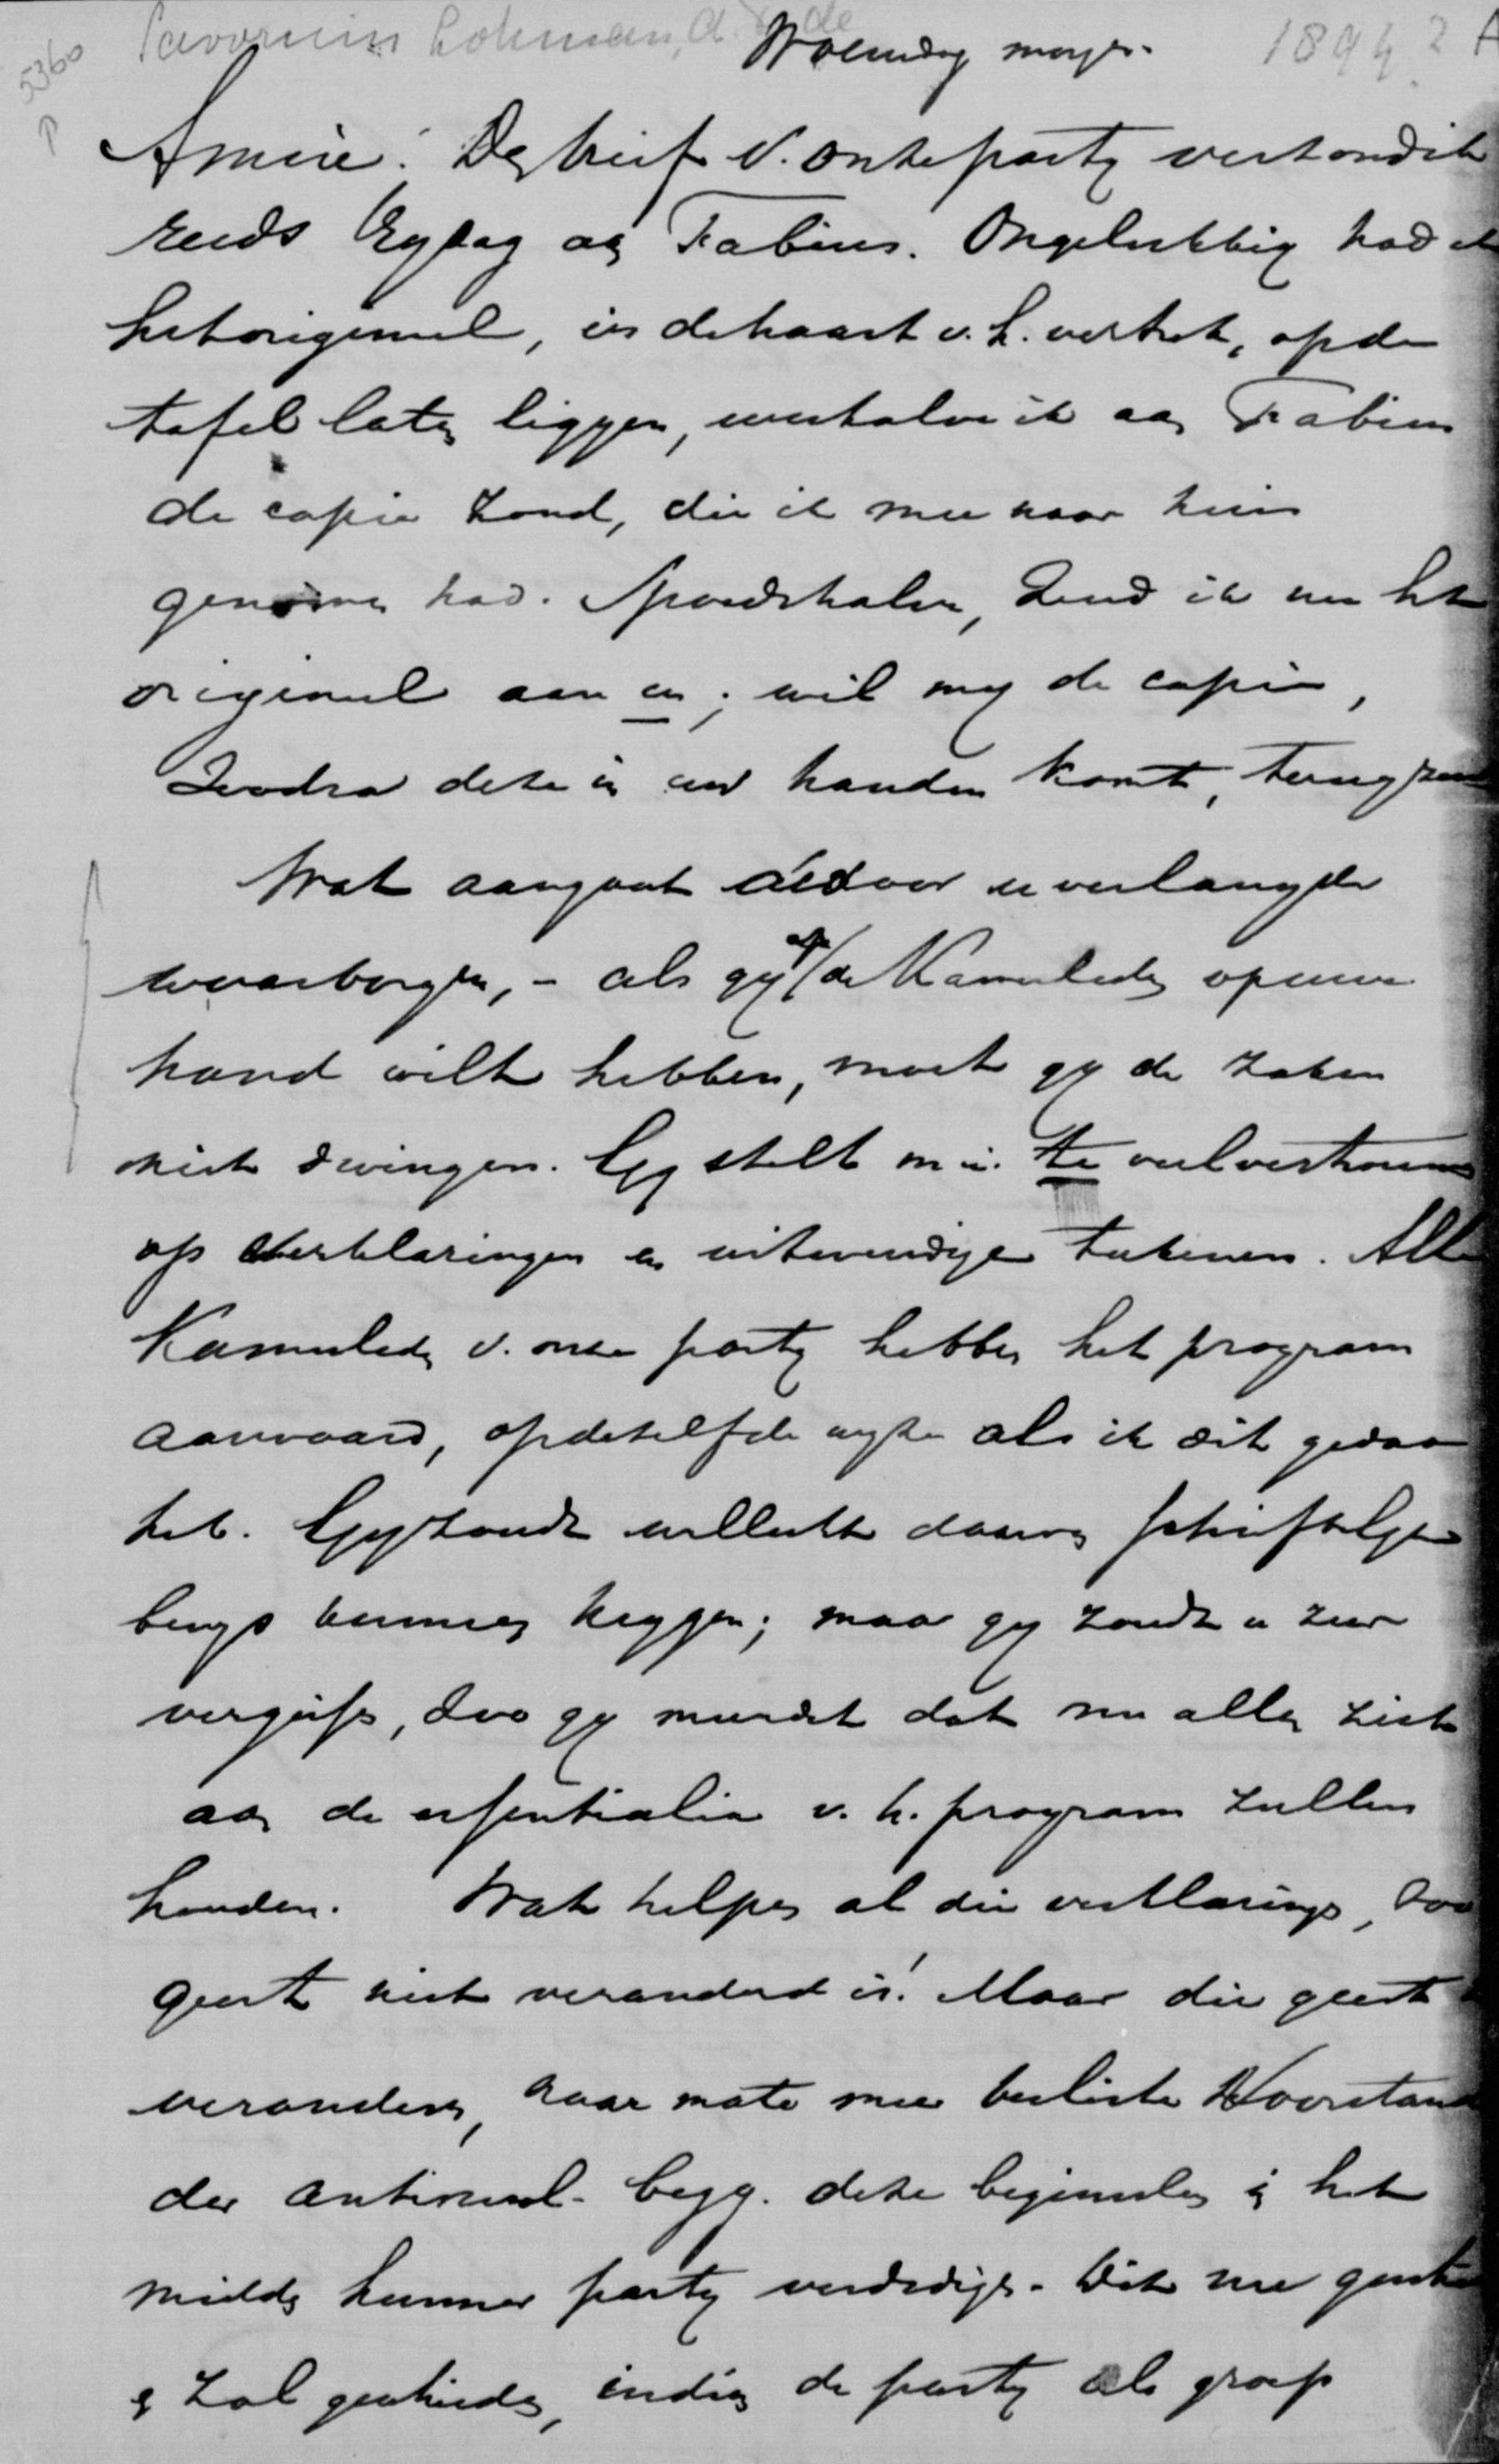 Savornin Lohman, A. F. de
1894? A
5360
P
Woensdag morgen.
Amice! Den brief v. onze party verzond ik
reeds Vrydag aan Fabius. Ongelukkig had ik
het origineel, in de haast v. h. vertrek, op de
tafel laten liggen, weshalve ik aan Fabius
de copie zond, die ik mee naar huis
genomen had. Spoedshalve, zend ik nu het
origineel aan u; wil my de copie,
zoodra deze in uw handen komt, terugzenden
Wat aangaat de door u verlangde
waarborgen, - als gy op de Kamerleden opnieuw
hand wilt hebben, moet gy de zaken
niet dwingen. Gy stelt m. i. te veel vertrouwen
op verklaringen en uitwendige teekenen. Alle
Kamerleden v. onze party hebben het program
aanvaard, op dezelfde wyze als ik dit gedaan
heb. Gy zoudt wellicht daarvan schriftelyke
bewys kunnen krygen; maar gy zoudt u zeer
vergissen, zoo gy meendet dat nu allen zich
aan de essentialia v. h. program zullen
houden. Wat helpen al die verklaringen, zoo
geest niet veranderd is! Maar die geest
veranderen, naar mate meer besliste voorstand
der antirevol. begg. deze beginselen in het
midden hunner party verdedigen. Dit nu
en zal geschieden, indien de party als groep